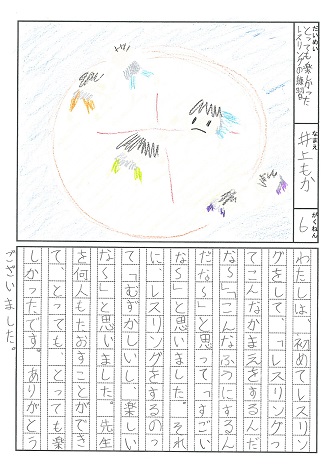 だいめい
とっても楽しかった
レスリングの練習
なまえ
井上もか
がくねん
6
わたしは、初めてレスリン
グをして、「レスリングっ
てこんなかまえをするんだ
な〜」「こんなふうにするん
だな〜」と思って「すごい
な〜」と思いました。それ
に、レスリングをするのっ
て「むずかしいし、楽しい
な〜」と思いました。先生
を何人もたおすことができ
て、とっても、とっても楽
しかったです。ありがとう
ございました。